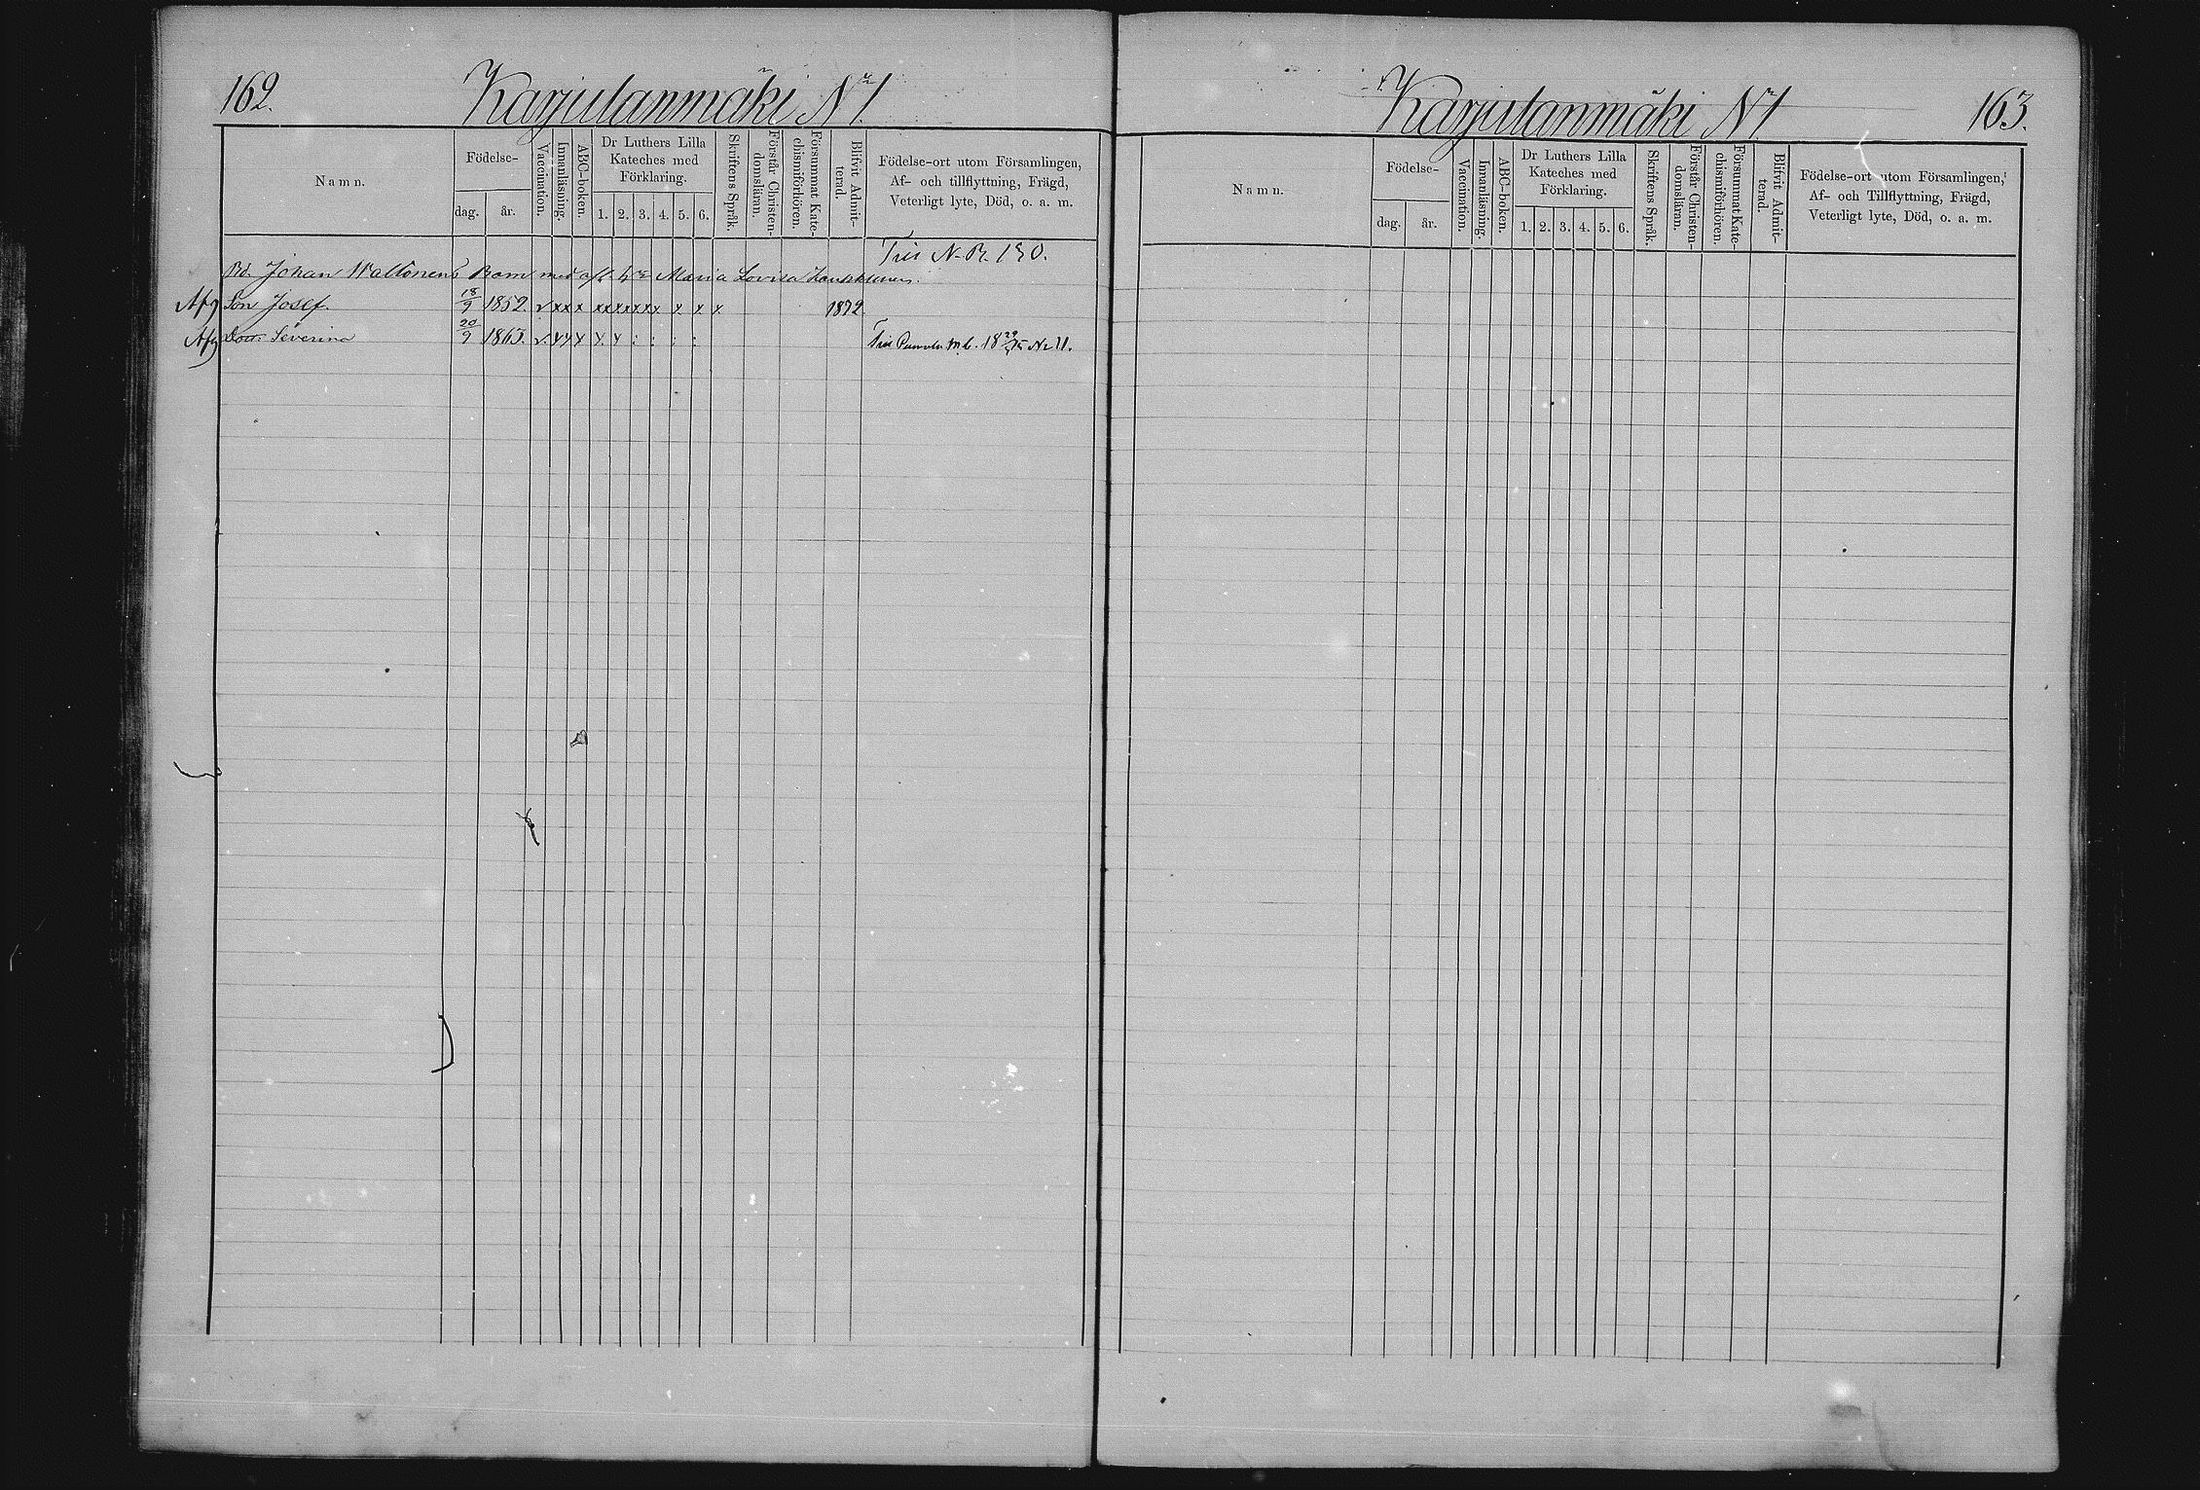 162.
Karjulanmäki No 1
Namn.
Födelse-
dag.
år.
Vaccination.
Innanläsning.
ABC-boken.
Dr Luthers Lilla
Kateches med
Förklaring.
1. 2. 3. 4. 5. 6.
Skriftens Språk.
Förstår Christen-
domsläran.
Försummat Kate-
chismiförhören.
Blifvit Admit-
terad.
Födelse-ort utom Församlingen,
Af- och tillflyttning, Frägd,
Veterligt lyte, Död, o. a. m.
Johan Waltonens Barn med afl. Maria Lovisa
Son Josef. 18/9 1852. v x x x x x x x x x x x x x 1872
Severina 20/9 1863. v. x x x x. x : : : :
Karjulanmäki No 1
163.
Namn.
Födelse-
dag.
år.
Vaccination.
Innanläsning.
ABC-boken.
Dr Luthers Lilla
Kateches med
Förklaring.
1. 2. 3. 4. 5. 6.
Skriftens Språk.
Förstår Christen-
domsläran.
Försummat Kate-
chismiförhören.
Blifvit Admit-
terad.
Födelse-ort utom Församlingen,
Af- och Tillflyttning, Frägd,
Veterligt lyte, Död, o. a. m.